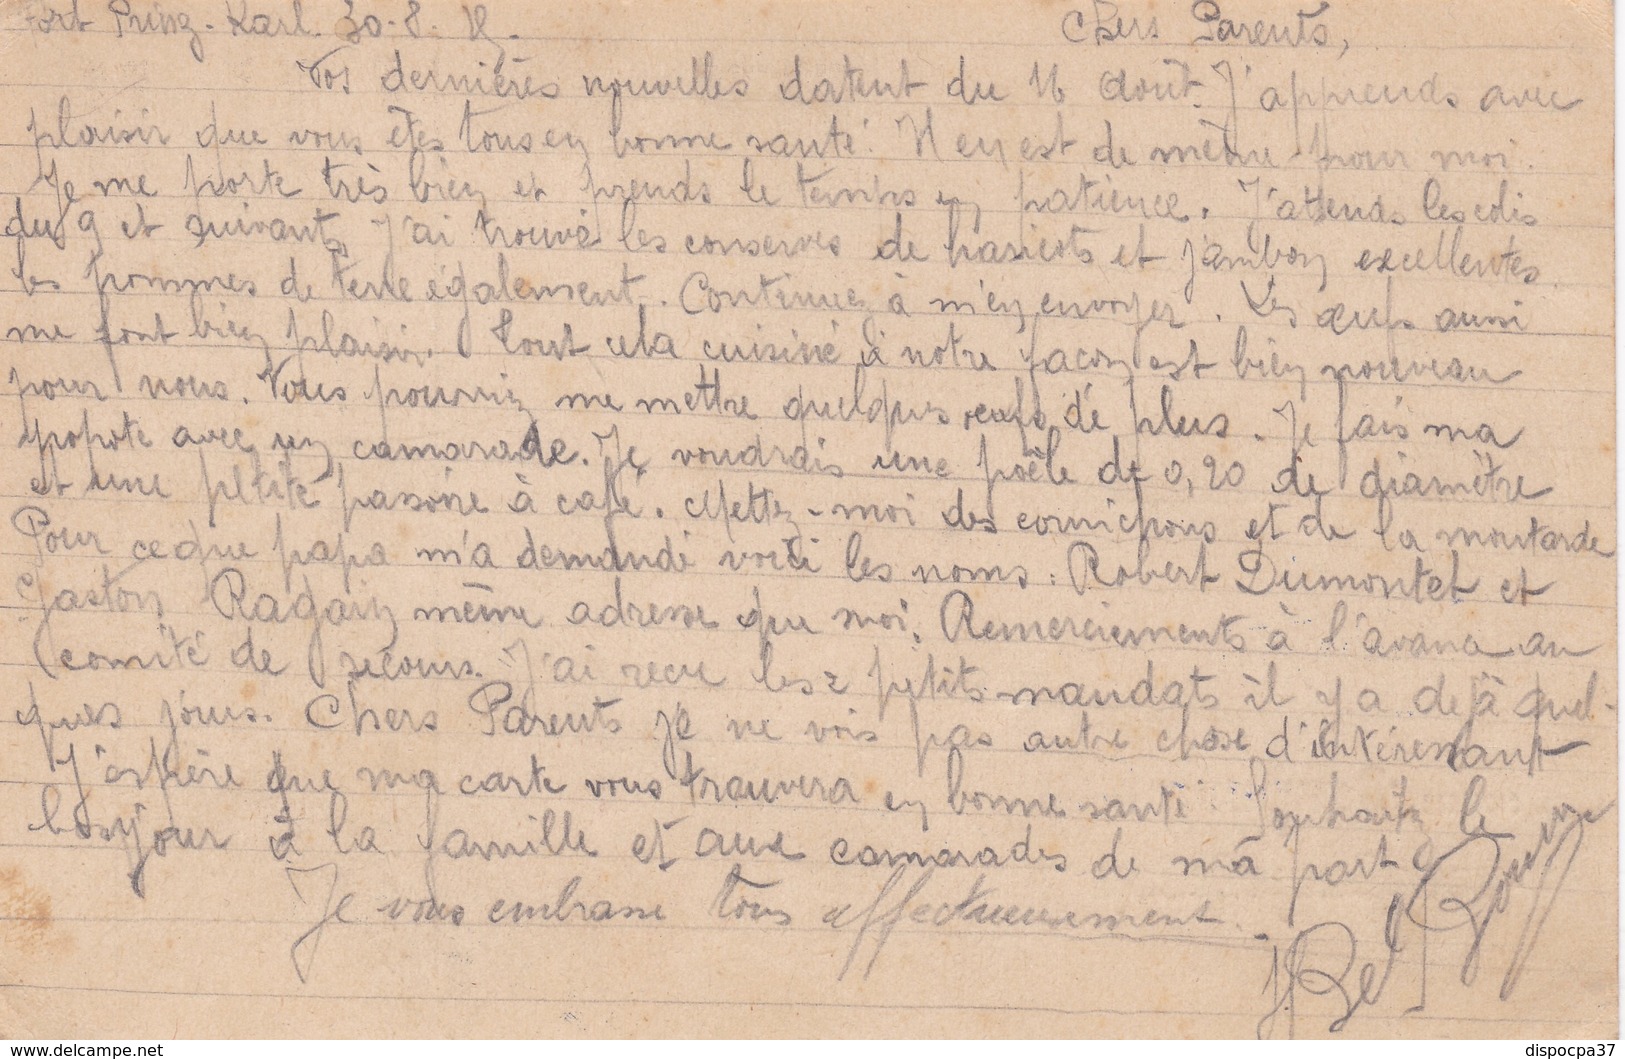 Fort Prinz-Karl. 30-8-15. Chers Parents,
Vos dernières nouvelles datent du 16 Août. J'apprends avec
plaisir que vous êtes tous en bonne santé. Il en est de même pour moi.
Je me porte très bien et prends le temps en patience. J'attends les colis
du 9 et suivants. J'ai trouvé les conserves de haricots et jambon excellentes
les pommes de terre également. Continuez à m'en envoyer. Les œufs aussi
me font bien plaisir. Tout cela cuisiné à notre façon est bien nouveau
pour nous. Vous pourriez me mettre quelques œufs de plus. Je fais ma
popote avec un camarade. Je voudrais une poêle de 0,20 de diamètre
et une petite passoire à café. Mettez-moi des cornichons et de la moutarde
Pour ce que papa m'a demandé voici les noms: Robert Dumontet et
Gaston Ragain même adresse que moi. Remerciements à l'avance au
comité de secours. J'ai reçu les 2 petits mandats il y a dejà quel-
ques jours. Chers Parents je ne vois pas autre chose d'intéressant
J'espère que ma carte vous trouvera en bonne santé. Souhaitez le
bonjour à la famille et aux camarades de ma part
Je vous embrasse tous affectueusement.
www.delcampe.net dispocpa37